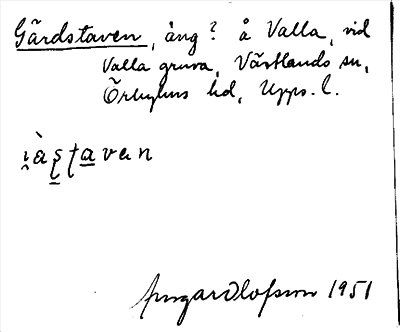 Gärdstaven, äng? å Valla, vid
Valla gruva, Västlands sn,
Örbyhus hd, Upps. l.
Ingar Olofsson 1951